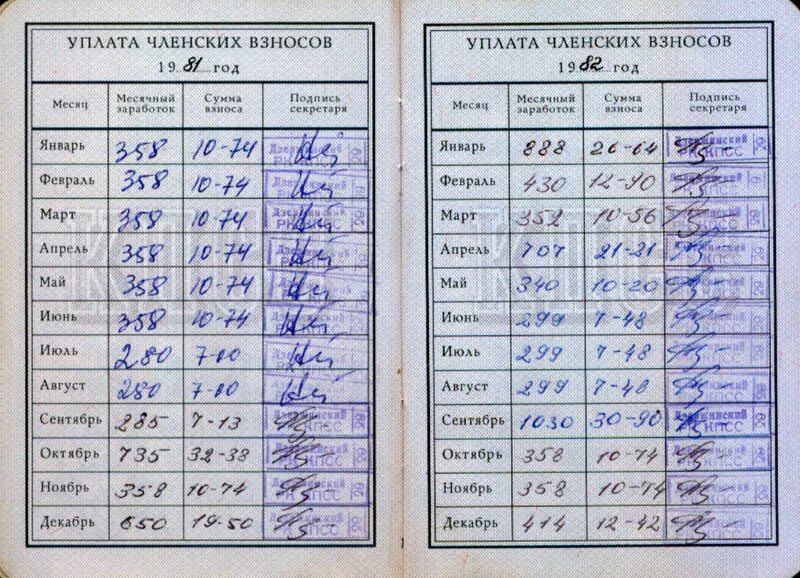 УПЛАТА ЧЛЕНСКИХ ВЗНОСОВ
1981 год
Месяц Месячный заработок Сумма взноса Подпись секретаря
Январь 358 10-74
Февраль 358 10-74
Март 358 10-74
Апрель 358 10-74
Май 358 10-74
Июнь 358 10-74
Июль 280 7-00
Август 280 7-00
Сентябрь 285 7-13
Октябрь 735 32-38
Ноябрь 358 10-74
Декабрь 650 19-50
УПЛАТА ЧЛЕНСКИХ ВЗНОСОВ
1982 год
Месяц Месячный заработок Сумма взноса Подпись секретаря
Январь 888 26-64
Февраль 430 12-90
Март 352 10-56
Апрель 707 21-21
Май 340 10-20
Июнь 299 7-48
Июль 299 7-48
Август 299 7-48
Сентябрь 1030 30-90
Октябрь 358 10-74
Ноябрь 358 10-74
Декабрь 414 12-42